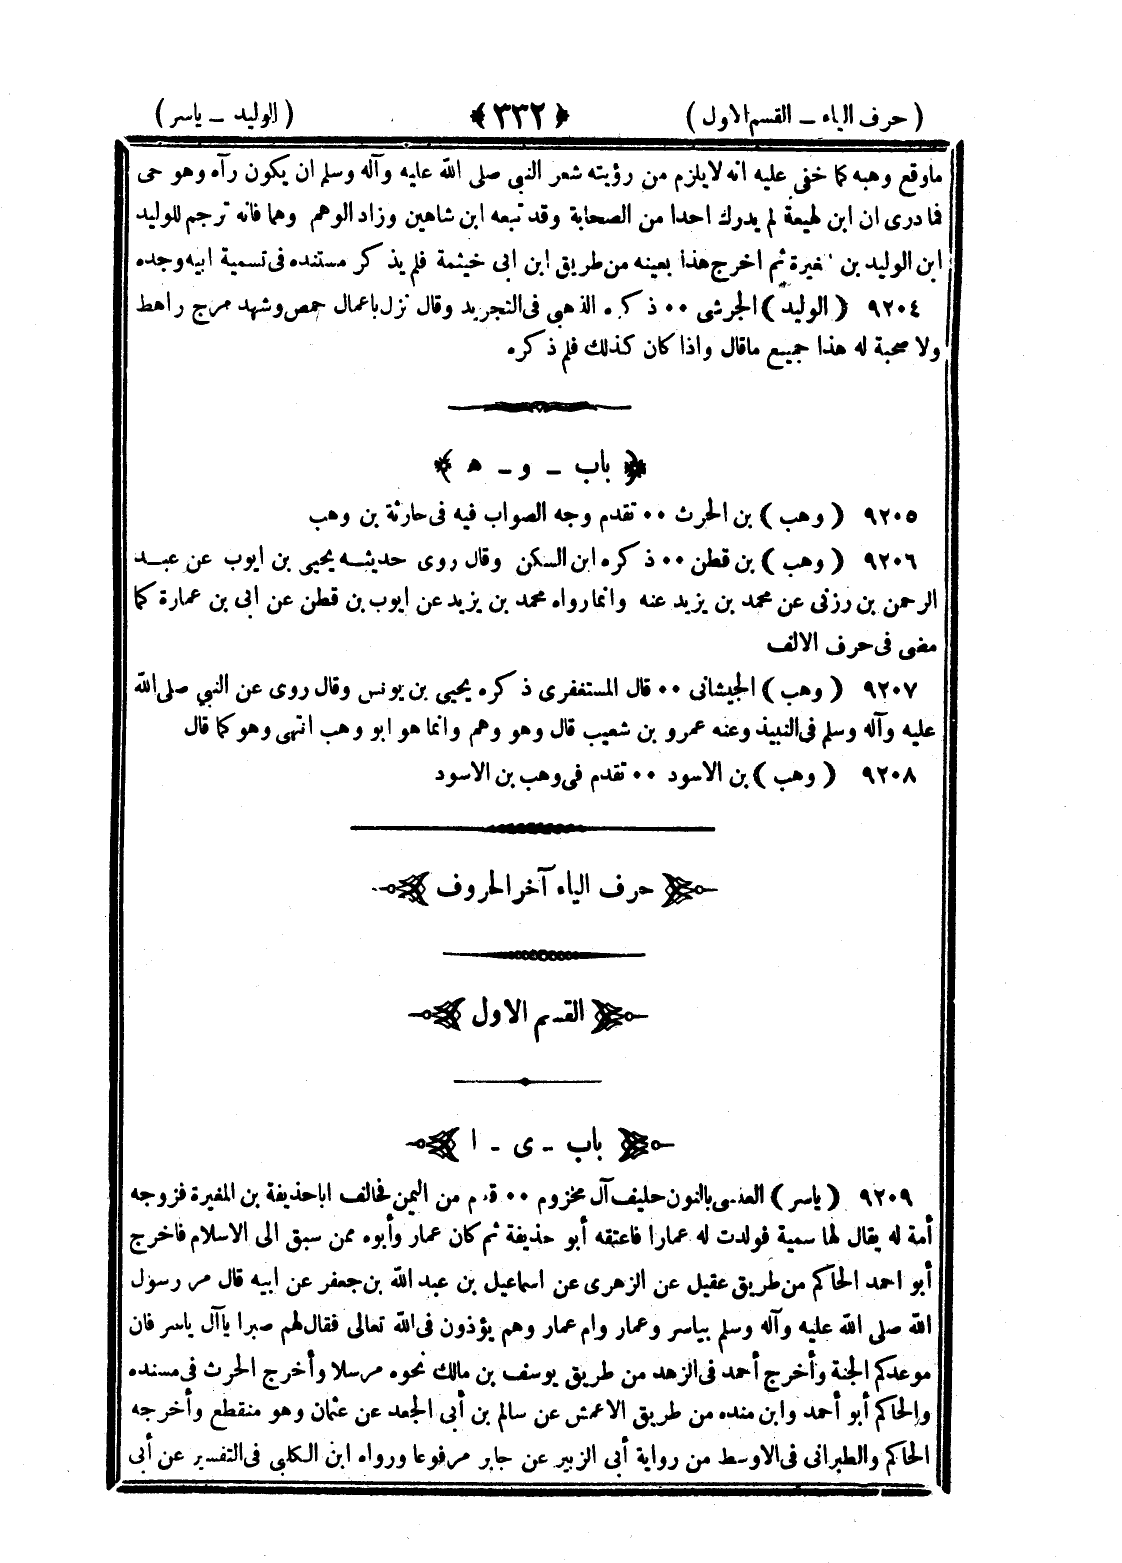 ( حرف الياء ــ القسم الاول ) ﴿ ٣٣٢ ﴾ ( الوليد ــ ياسر )
ماوقع وهبه كما خفى عليه انه لايلزم من رؤيته شعر النبي صلى الله عليه وآله وسلم ان يكون رآه وهو حى
فما درى ان ابن لهيعة لم يدرك احدا من الصحابة وقد تبعه ابن شاهين وزاد الوهم وهما فانه ترجم للوليد
ابن الوليد بن مغيرة ثم اخرج هذا بعينه من طريق ابن ابى خيثمة فلم يذكر مستنده فى تسمية ابيه وجده
٩٢٠٤ ( الوليد ) الجرشى ٠٠ ذكره الذهبى فى التجريد وقال نزل باعمال حمص وشهد مرج راهط
ولا صحبة له هذا جميع ماقال واذا كان كذلك فلم ذكره
﴿ باب ــ و ــ ه ﴾
٩٢٠٥ ( وهب ) بن الحرث ٠٠ تقدم وجه الصواب فيه فى حارثة بن وهب
٩٢٠٦ ( وهب ) بن قطن ٠٠ ذكره ابن السكن وقال روى حديثه يحيى بن ايوب عن عبد
الرحمن بن رزنى عن محمد بن يزيد عنه وانما رواه محمد بن يزيد عن ايوب بن قطن عن ابى بن عمارة كما
مضى فى حرف الالف
٩٢٠٧ ( وهب ) الجيشانى ٠٠ قال المستغفرى ذكره يحيى بن يونس وقال روى عن النبي صلى الله
عليه وآله وسلم فى النبيذ وعنه عمرو بن شعيب قال وهو وهم وانما هو ابو وهب انتهى وهو كما قال
٩٢٠٨ ( وهب ) بن الاسود ٠٠ تقدم فى وهب بن الاسود
حرف الياء آخر الحروف
القسم الاول
باب ـ ى ـ ا
٩٢٠٩ ( ياسر ) العنسى بالنون حليف آل مخزوم ٠٠ قدم من اليمن فحالف اباحذيفة بن المغيرة فزوجه
أمة له يقال لها سمية فولدت له عمارا فاعتقه أبو حذيفة ثم كان عمار وأبوه ممن سبق الى الاسلام فاخرج
أبو احمد الحاكم من طريق عقيل عن الزهرى عن اسماعيل بن عبد الله بن جعفر عن ابيه قال مر رسول
الله صلى الله عليه وآله وسلم بياسر وعمار وام عمار وهم يؤذون فى الله تعالى فقال لهم صبرا ياآل ياسر فان
موعدكم الجنة وأخرج أحمد فى الزهد من طريق يوسف بن مالك نحوه مرسلا وأخرج الحرث فى مسنده
والحاكم أبو أحمد وابن منده من طريق الاعمش عن سالم بن أبى الجعد عن عثمان وهو منقطع وأخرجه
الحاكم والطبرانى فى الاوسط من رواية أبى الزبير عن جابر مرفوعا ورواه ابن الكلبى فى التفسير عن أبى